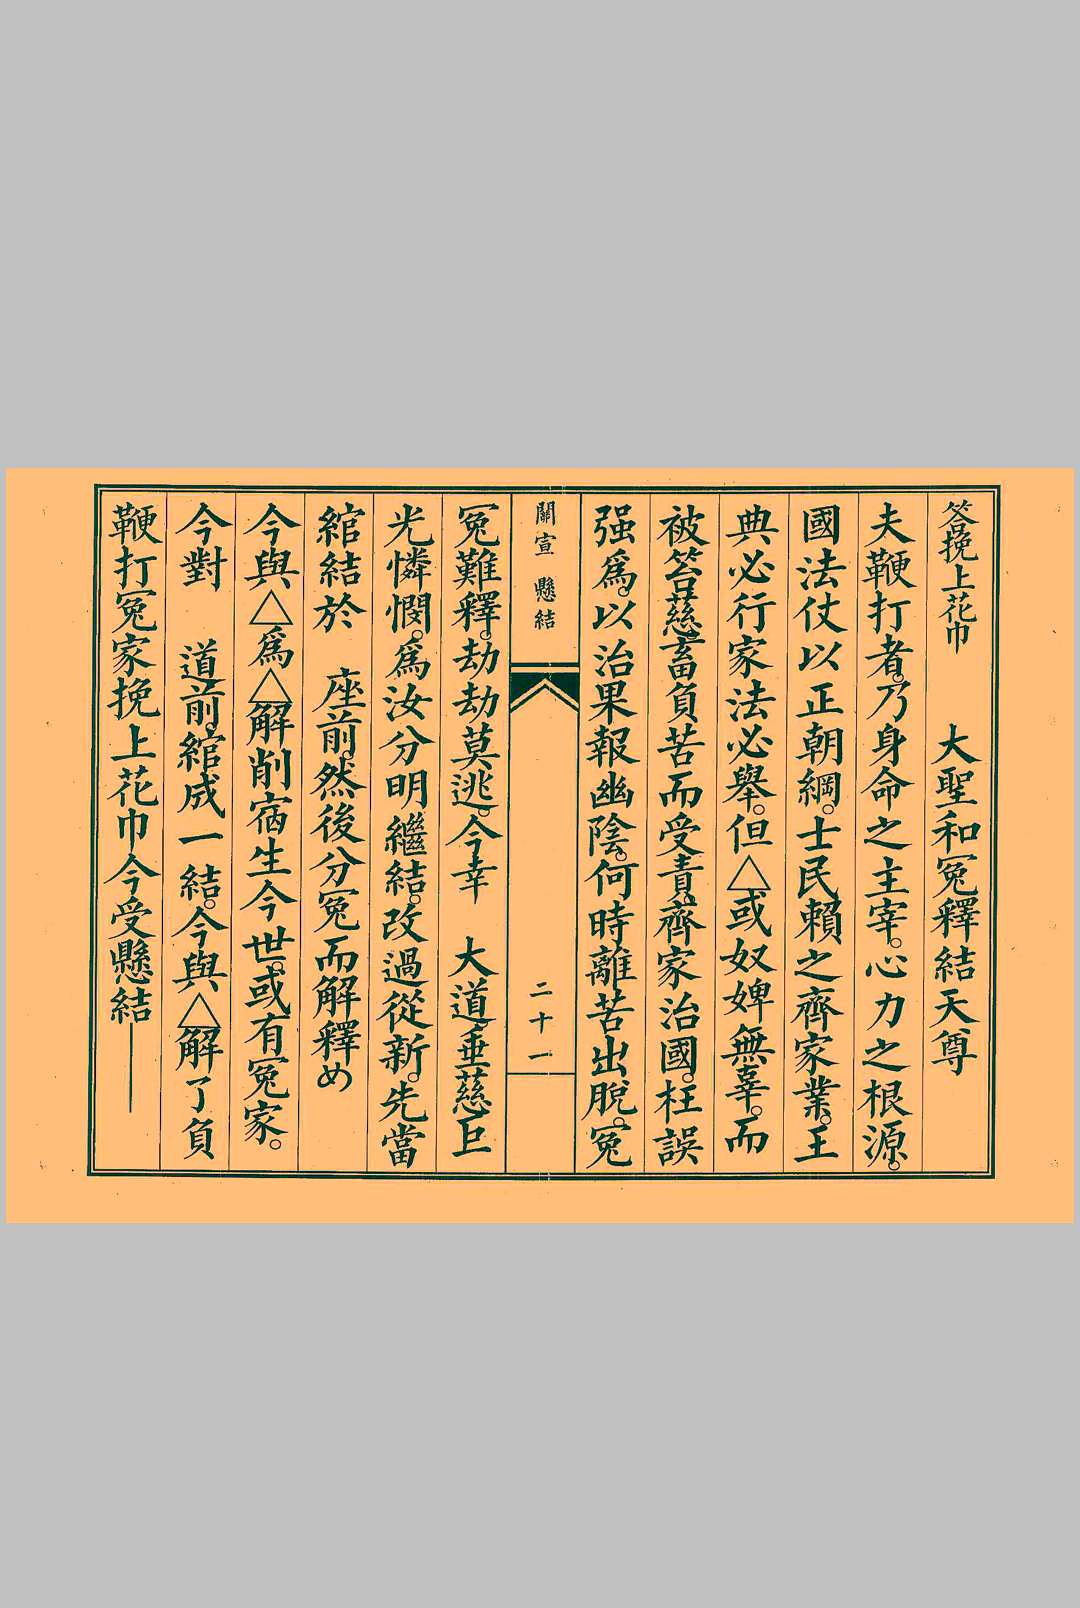 答挽上花巾　　大聖和冤釋結天尊
夫鞭打者。乃身命之主宰。心力之根源。
國法仗以正朝綱。士民賴之齊家業。王
典必行家法必舉。但△或奴婢無辜。而
被笞慈畜負苦而受責。齊家治國。枉誤
强爲。以治果報幽陰。何時離苦出脫。冤
關宣　懸結　二十一
冤難釋。劫劫莫逃。今幸　大道垂慈巨
光憐憫。爲汝分明繼結。改過從新。先當
綰結於　座前。然後分冤而解釋め
今與△爲△解削宿生今世。或有冤家。
今對　道前。綰成一結。今與△解了負
鞭打冤家挽上花巾今受懸結——